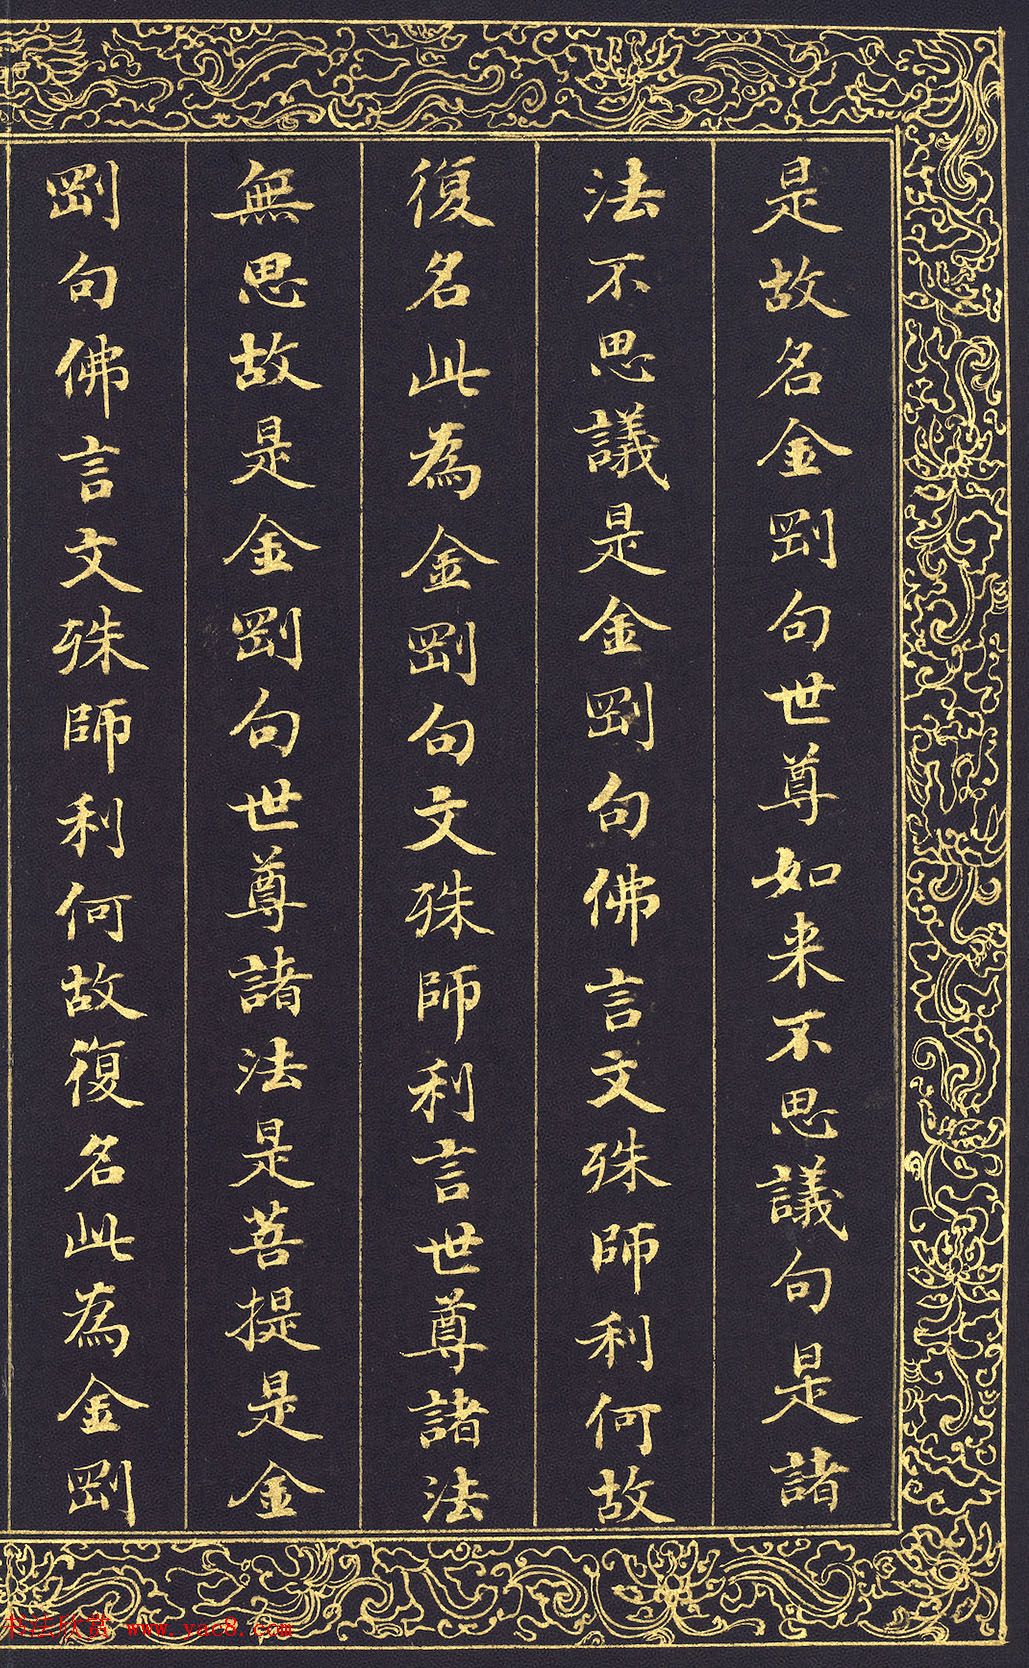 是故名金剛句世尊如来不思議句是諸
法不思議是金剛句佛言文殊師利何故
復名此為金剛句文殊師利言世尊諸法
無思故是金剛句世尊諸法是菩提是金
剛句佛言文殊師利何故復名此為金剛
书法欣赏 www.yac8.com